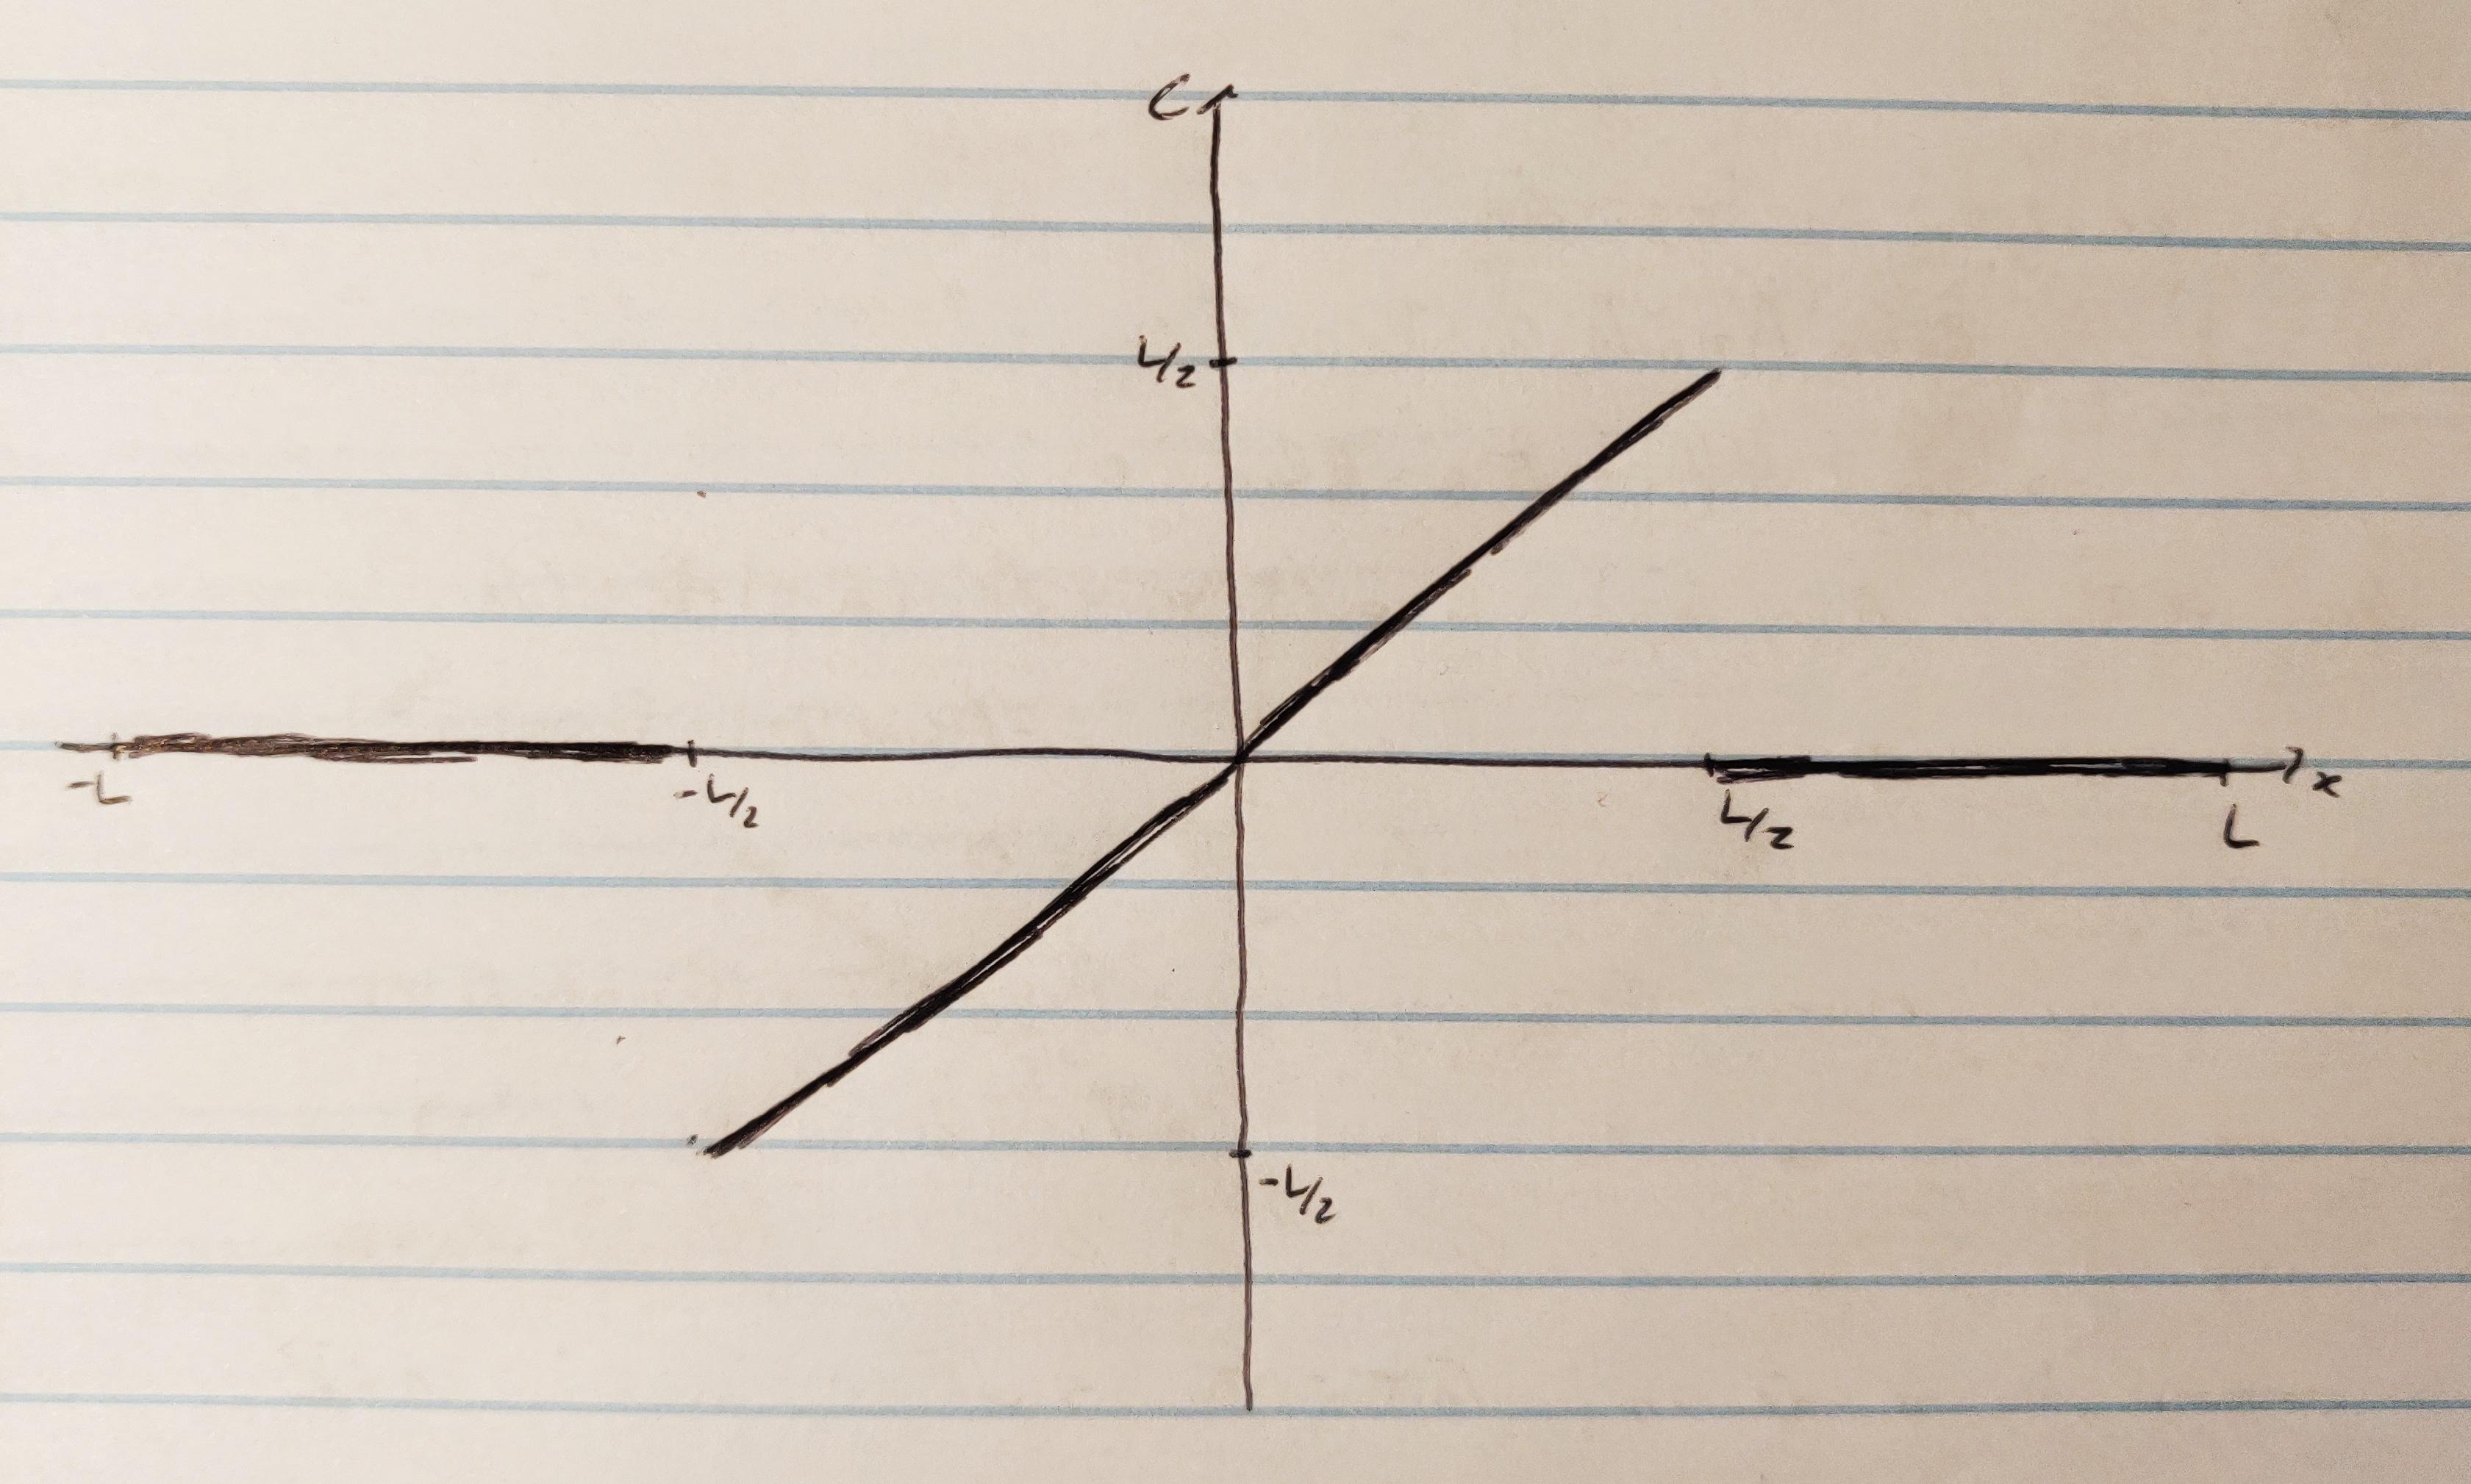 C
L/2
-L
-L/2
L/2
L
x
-L/2